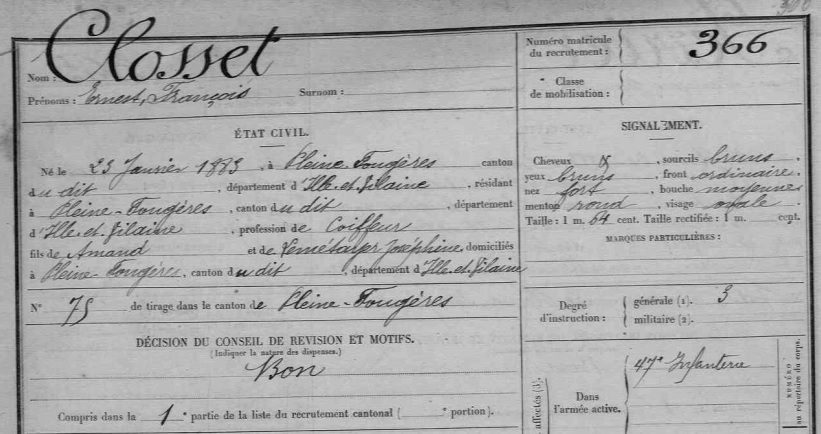 Nom : Closset
Prénoms : Ernest, François Surnom :
Numéro matricule du recrutement : 366
Classe de mobilisation :
ÉTAT CIVIL.
Né le 23 Janvier 1883, à Pleine-Fougères canton
du dit, département d'Ille-et-Vilaine, résidant
à Pleine-Fougères, canton du dit, département
d'Ille-et-Vilaine, profession de Coiffeur
fils de Amand et de Joséphine, domiciliés
à Pleine-Fougères, canton du dit, département d'Ille-et-Vilaine
N° 75 de tirage dans le canton de Pleine-Fougères
SIGNALEMENT.
Cheveux &, sourcils bruns
yeux bruns, front ordinaire
nez fort, bouche moyenne
menton rond, visage ovale
Taille : 1 m. 64 cent. Taille rectifiée : 1 m. cent.
MARQUES PARTICULIÈRES :
DÉCISION DU CONSEIL DE REVISION ET MOTIFS.
(Indiquer la nature des dispenses.)
Bon
Compris dans la 1e partie de la liste du recrutement cantonal ( e portion).
Degré d'instruction :
générale (1). 3
militaire (2).
affectés (3).
Dans l'armée active.
47e Infanterie
NUMÉRO
au répertoire du corps.